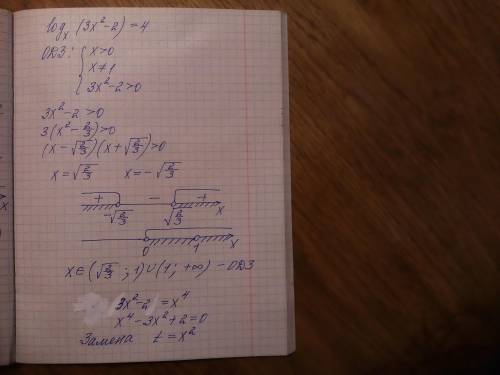 log_x (3x²-2) = 4
ОДЗ: { x>0
x≠1
3x²-2>0
3x²-2>0
3(x²-2/3)>0
(x-√(2/3))(x+√(2/3))>0
x=√(2/3) x=-√(2/3)
+ - + x
-√(2/3) √(2/3)
0 1 x
x∈(√(2/3);1)∪(1;+∞) - ОДЗ
3x²-2 = x⁴
x⁴-3x²+2=0
Замена t=x²